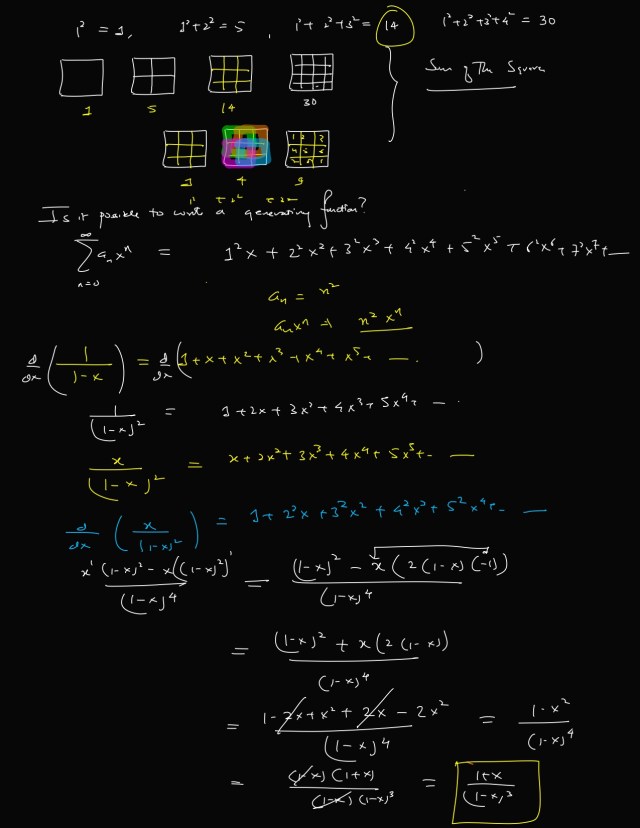 1² = 1, 1²+2² = 5 , 1²+ 2²+3² = 14 1²+2²+3²+4² = 30
Sum of The Square
1 5 14 30
1 2 3
4 5 6
1 4 9
1² + 2² + 3²
Is it possible to write a generating function?
∞
∑ aₙxⁿ = 1²x + 2²x² + 3²x³ + 4²x⁴ + 5²x⁵ + 6²x⁶ + 7²x⁷+ —
n=0
aₙ = n²
aₙxⁿ → n² xⁿ
d/dx (1/(1-x)) = d/dx (1+x+x²+x³+x⁴+x⁵+ — . )
1/(1-x)² = 1+2x+3x²+4x³+5x⁴+ — .
x/(1-x)² = x+2x²+3x³+4x⁴+5x⁵+- —
d/dx (x/(1-x)²) = 1+2²x+3²x²+4²x³+5²x⁴+- —
(x'(1-x)² - x((1-x)²)')/(1-x)⁴ = ((1-x)² - x(2(1-x)(-1)))/(1-x)⁴
= ((1-x)² + x(2(1-x))/(1-x)⁴
= (1-2x+x²+2x-2x²)/(1-x)⁴ = (1-x²)/(1-x)⁴
= ((1-x)(1+x))/((1-x)(1-x)³) = (1+x)/(1-x)³